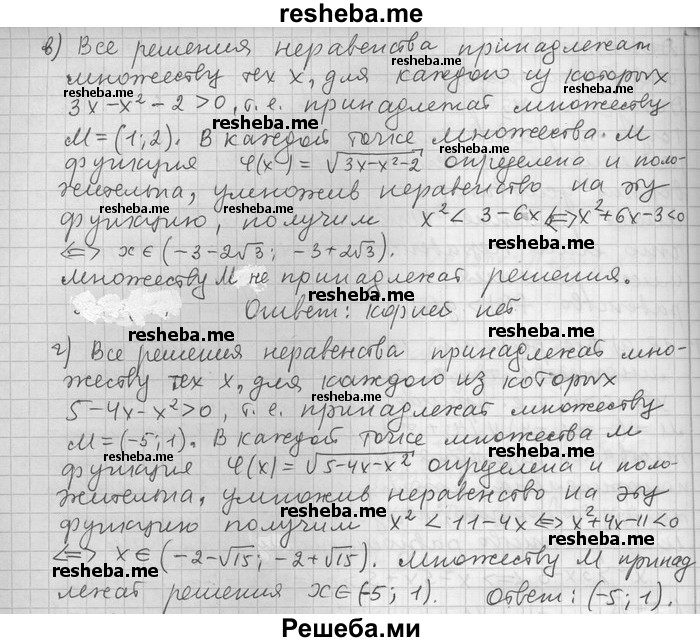 resheba.me
в) Все решения неравенства принадлежат
множеству тех x, для каждого из которых
3x-x²-2>0, т.е. принадлежат множеству
M=(1;2). В каждой точке множества M
функция φ(x)=√3x-x²-2 определена и поло-
жительна, умножив неравенство на эту
функцию, получим x²<3-6x⟺x²+6x-3<0
⟺ x∈(-3-2√3; -3+2√3).
множеству M не принадлежат решения.
Ответ: корней нет
г) Все решения неравенства принадлежат мно-
жеству тех x, для каждого из которых
5-4x-x²>0, т.е. принадлежат множеству
M=(-5;1). В каждой точке множества M
функция φ(x)=√5-4x-x² определена и поло-
жительна, умножив неравенство на эту
функцию получим x²<11-4x⟺x²+4x-11<0
⟺ x∈(-2-√15; -2+√15). множеству M принад
лежат решения x∈(-5; 1). Ответ: (-5; 1).
resheba.me
Решеба.ми